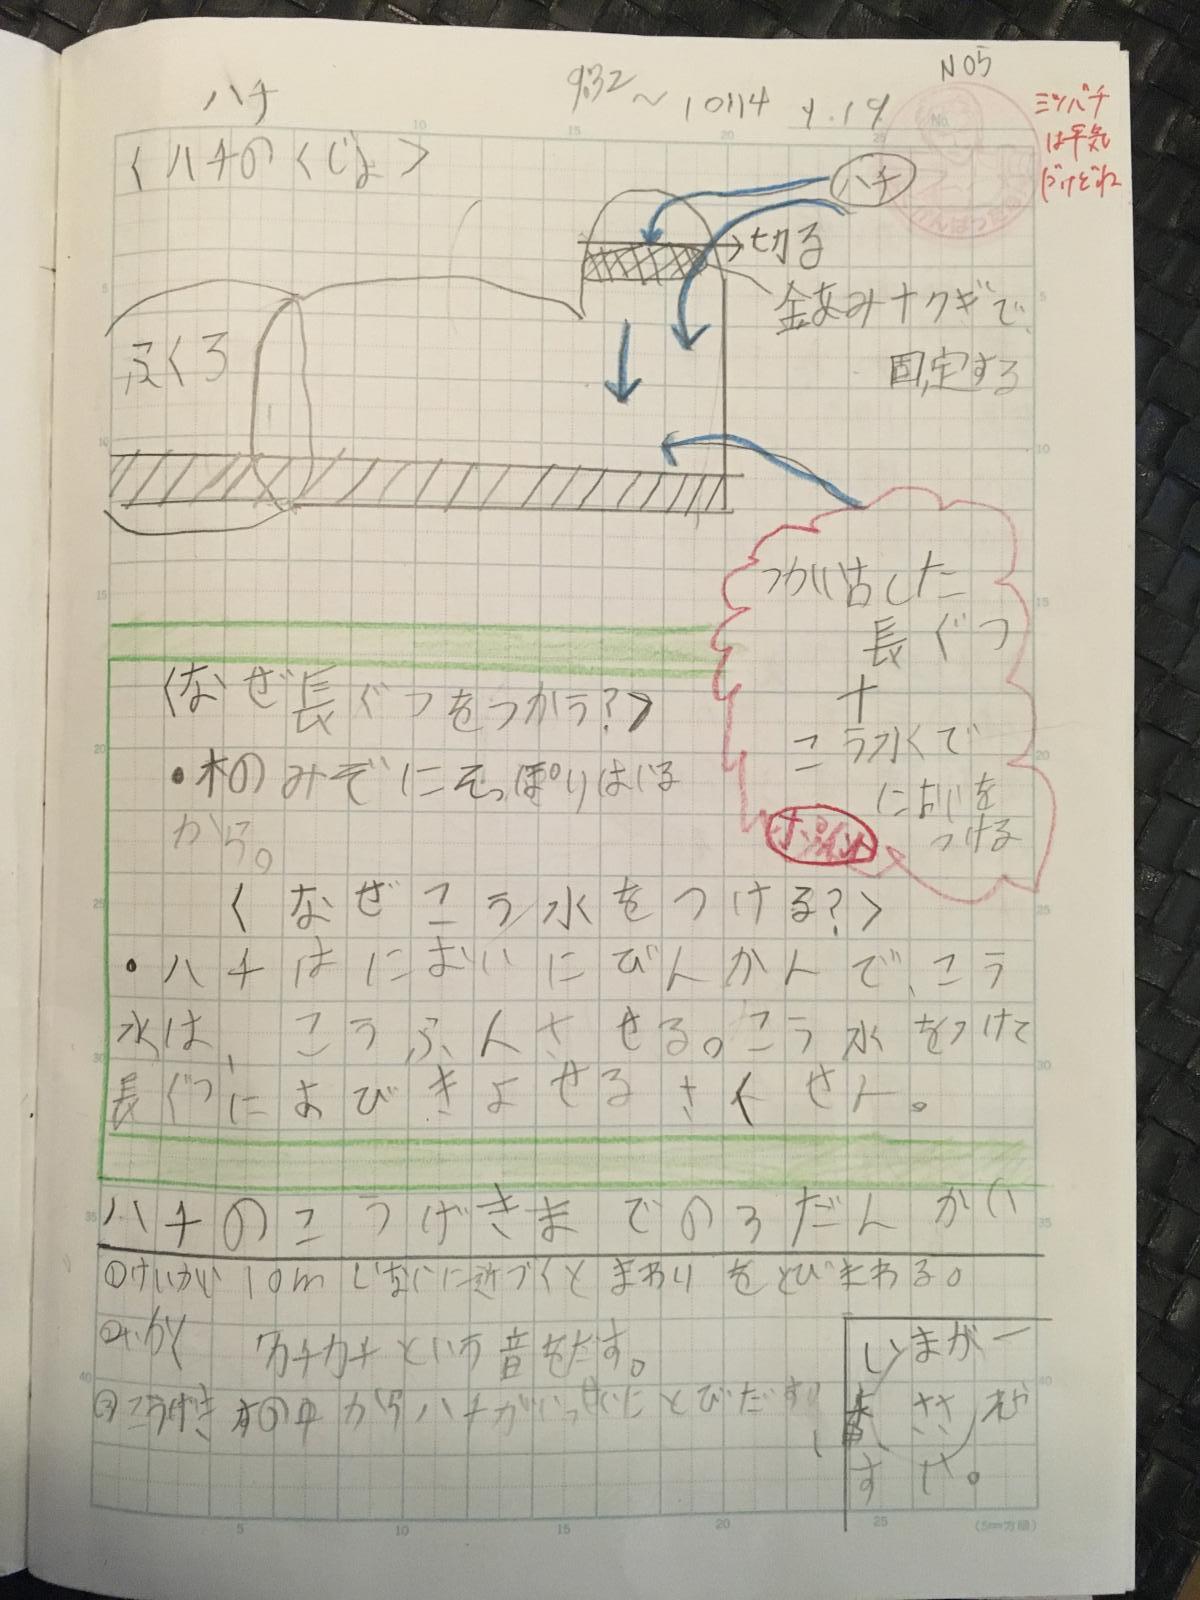 ハチ
9:32 ~ 10:14
4.19
No5
ミツバチ
は平気
だけどね
〈ハチのくじょ〉
ハチ
切る
金あみ+クギで
固定する
ふくろ
つかい古した
長ぐつ
+
こう水くで
においを
つける
ポイント
〈なぜ長ぐつをつかう?〉
・木のみぞにそっぽりはいる
から。
〈なぜこう水をつける?〉
・ハチはにおいにびんかんで、こう
水は、こうふんさせる。こう水をつけて
長ぐつにおびきよせるさくせん。
ハチのこうげきまでの3だんかい
①けいかい 10mいないに近づくとまわりをとびまわる。
②いかく カチカチという音をだす。
③こうげき 木の中からハチがいっせいにとびだす!
いまが一
番ささ
やす
(5mm方眼)